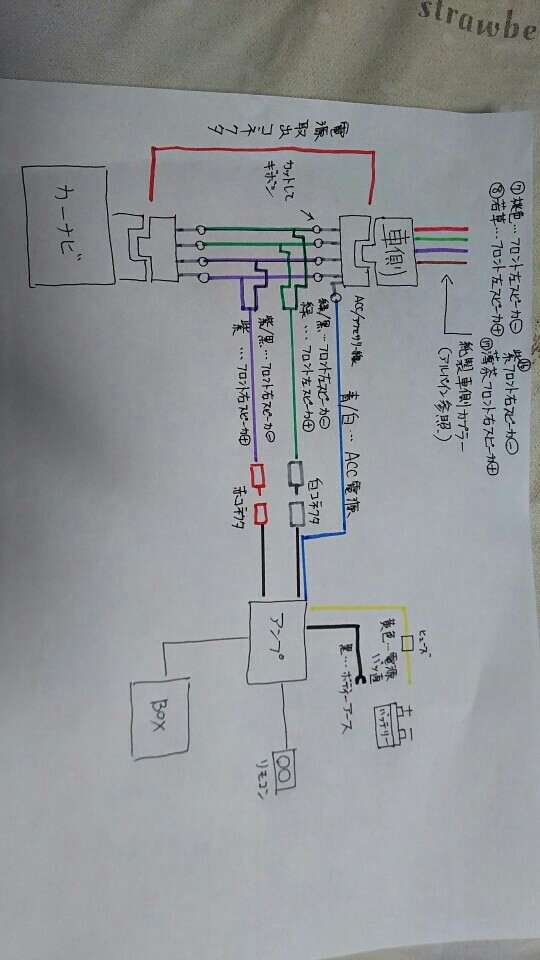 strawbe
⑦桃色…フロント左スピーカ⊖
⑧若草…フロント左スピーカ⊕
紫フロント右スピーカ⊖
薄茶フロント右スピーカ⊕
純製車側カプラー
(アルパイン参照)
電源
取出
コネクタ
カットして
ギボシ
車側
カーナビ
ACC/アクセサリー線
緑/黒…フロント左スピーカ⊖
緑…フロント左スピーカ⊕
紫/黒…フロント右スピーカ⊖
紫…フロント右スピーカ⊕
青/白…ACC電源
白コネクタ
赤コネクタ
アンプ
BOX
リモコン
ヒューズ
黄色…電源
バッ直
黒…ボディーアース
+ −
バッテリー